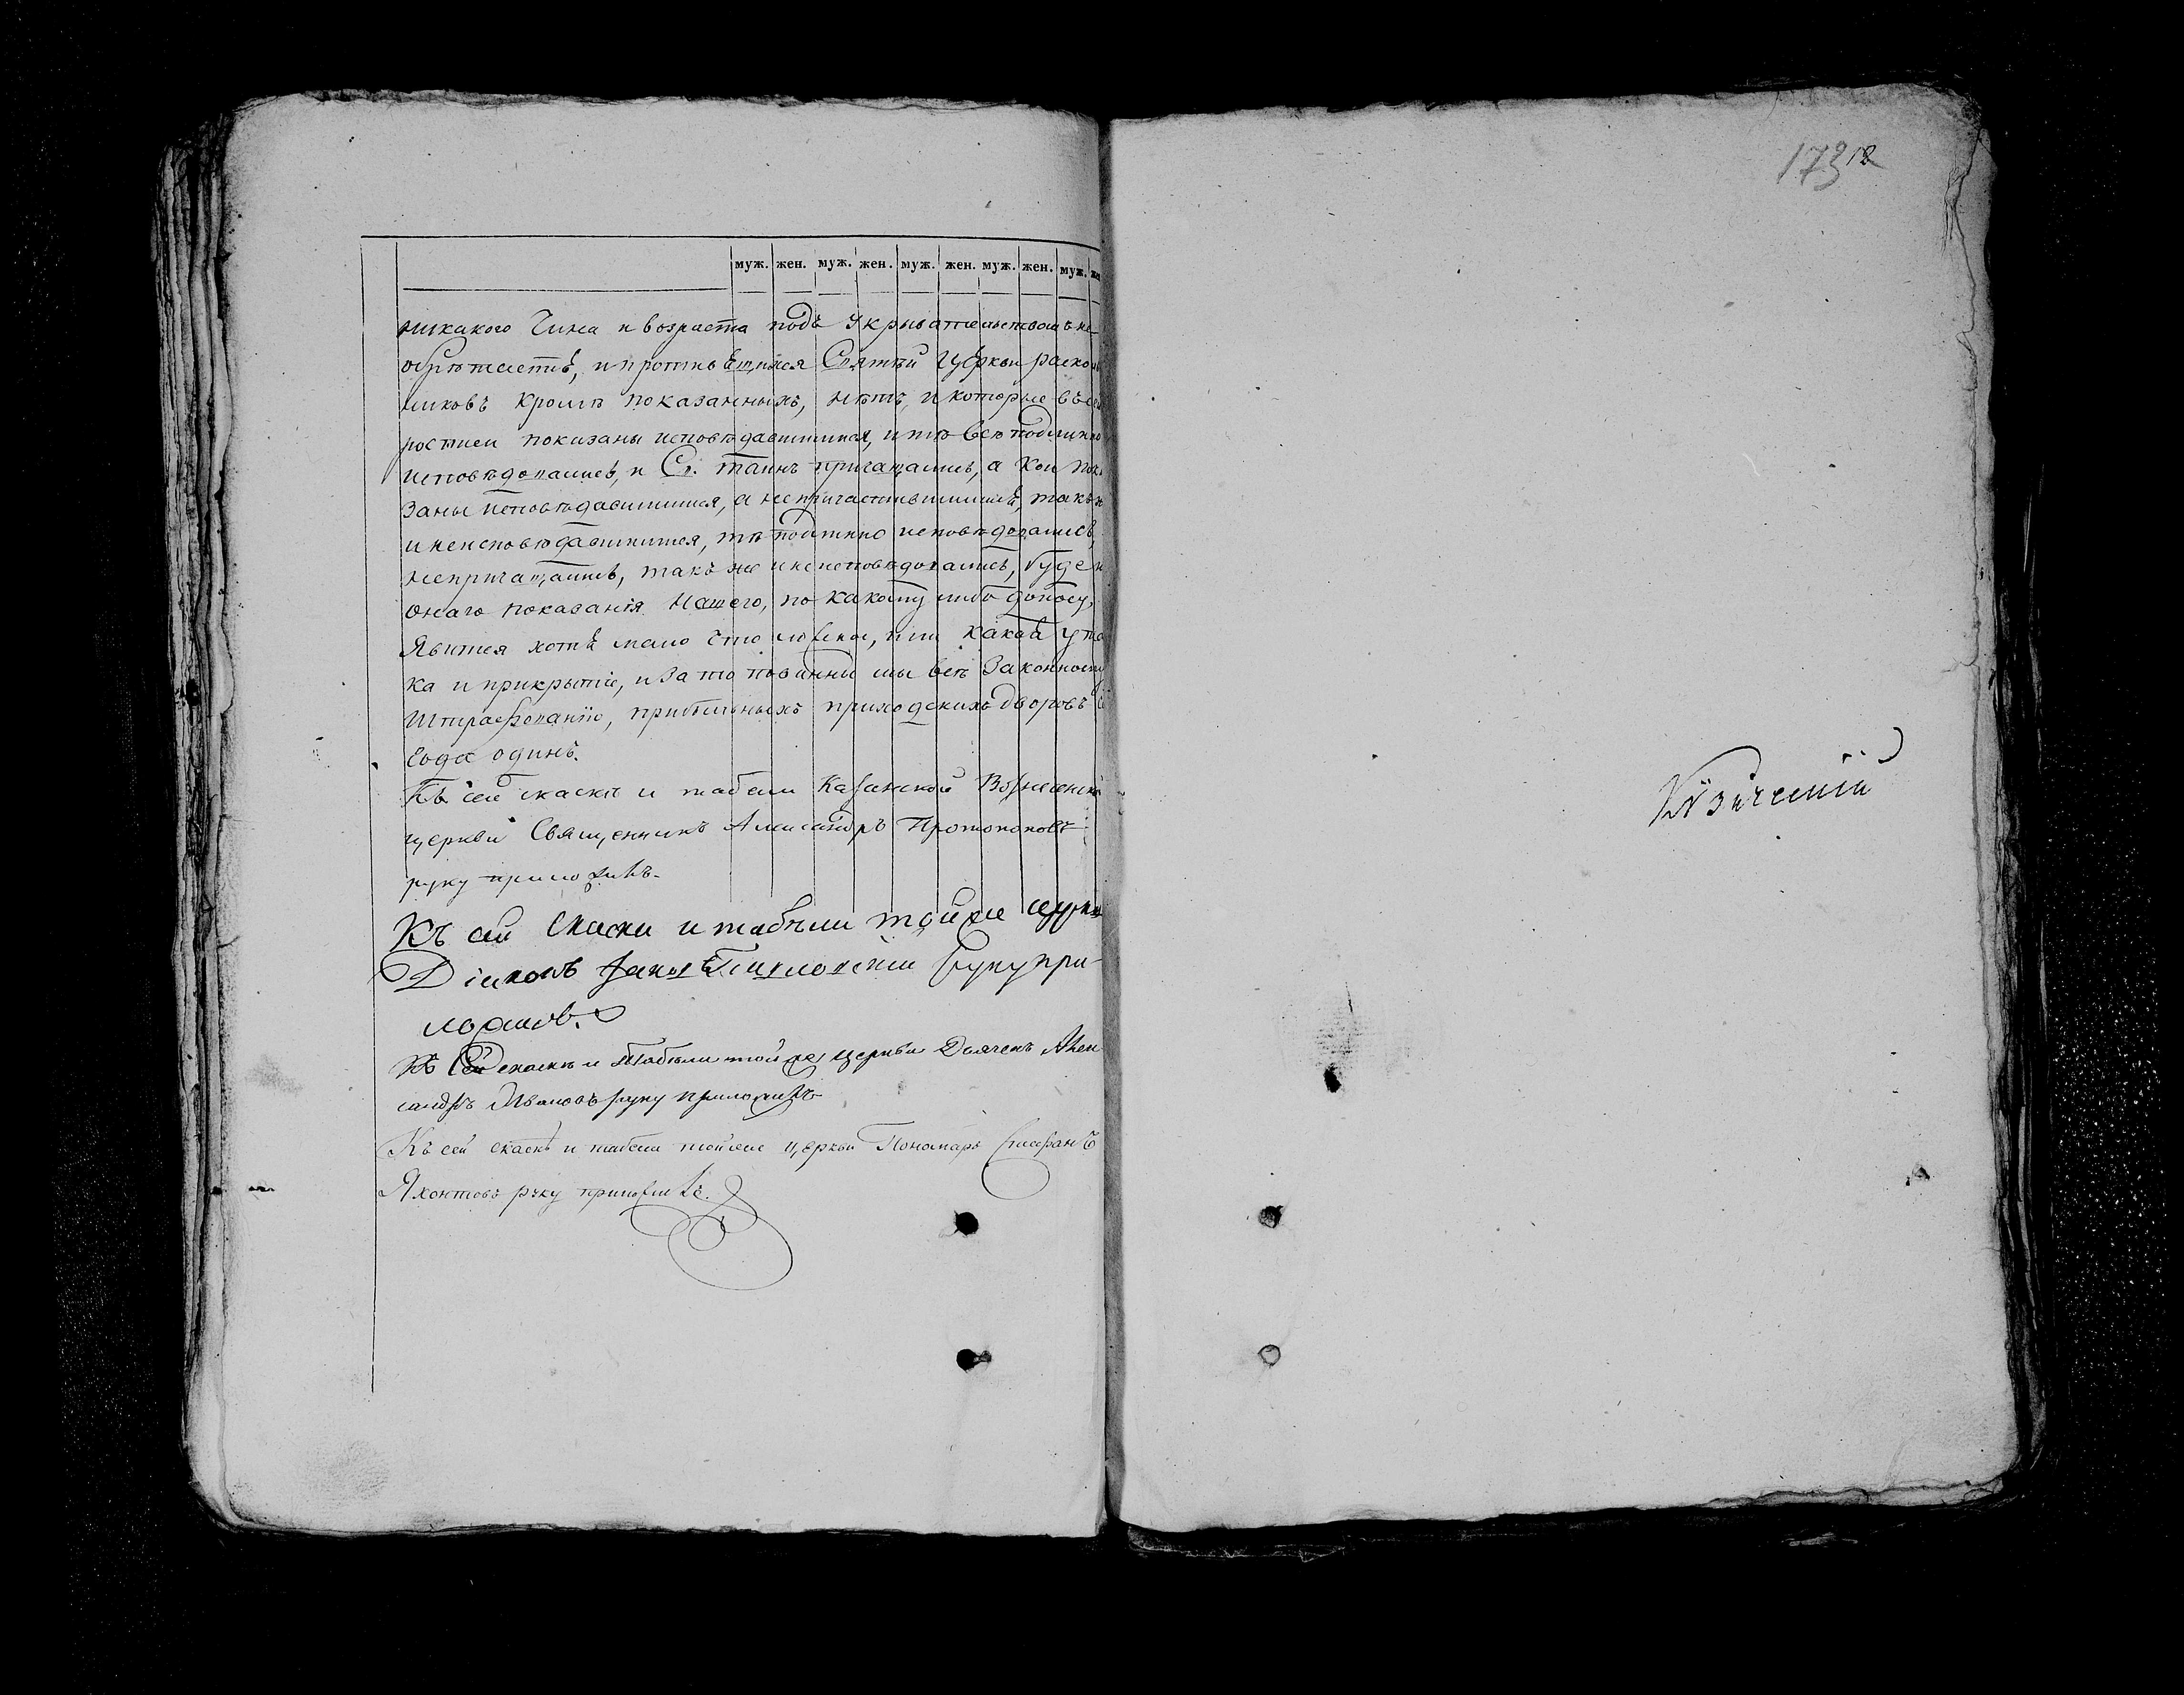 173 12
муж. жен. муж. жен. муж. жен. муж. жен. муж.
никакого Чина и возраста подъ Укрывательствомъ не
обрѣтается, и противящихся Святѣй Церкви раскол
никовъ кромѣ показанныхъ, нѣтъ, и которые въ сей
росписи показаны исповѣдавшимися, и тѣ всѣ подлинно
исповѣдовались, и Св. таинъ причащались, а Кои пока
заны исповѣдавшимися, а непричастившимися, такъ
и неисповѣдавшимися, тѣ подлинно исповѣдовались,
непричащались, такъ же и неисповѣдовались, буде
онаго показанія Нашего, по какому либо доносу,
Явится хотя мало что ложное, или какая ута
ка и прикрытіе, и за то повинны мы всѣ Законному
Штрафованію, приходскихъ дворовъ
года одинъ.
Къ сей скаскѣ и табели Казанской Вознесенской
церкви Священникъ Александръ Протопоповъ
руку приложилъ.
Къ сей скаски и табѣли тойже церкви
Діаконъ руку при-
ложилъ.
Къ Сей скаскѣ и Табѣли той же церкви Дьячекъ Алек
сандръ Ивановъ руку приложилъ
Къ сей скаскѣ и табели тойже церкви Пономарь Стефанъ
Яхонтовъ руку приложилъ.